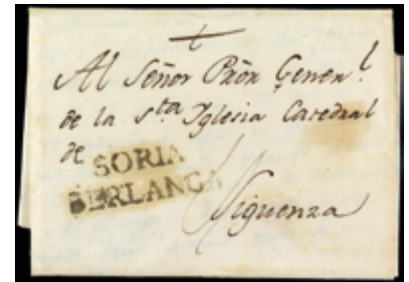 Al Señor Prõr Genen.l
de la Sta Yglesia Catedral
de
SORIA
BERLANGA
Siguenza